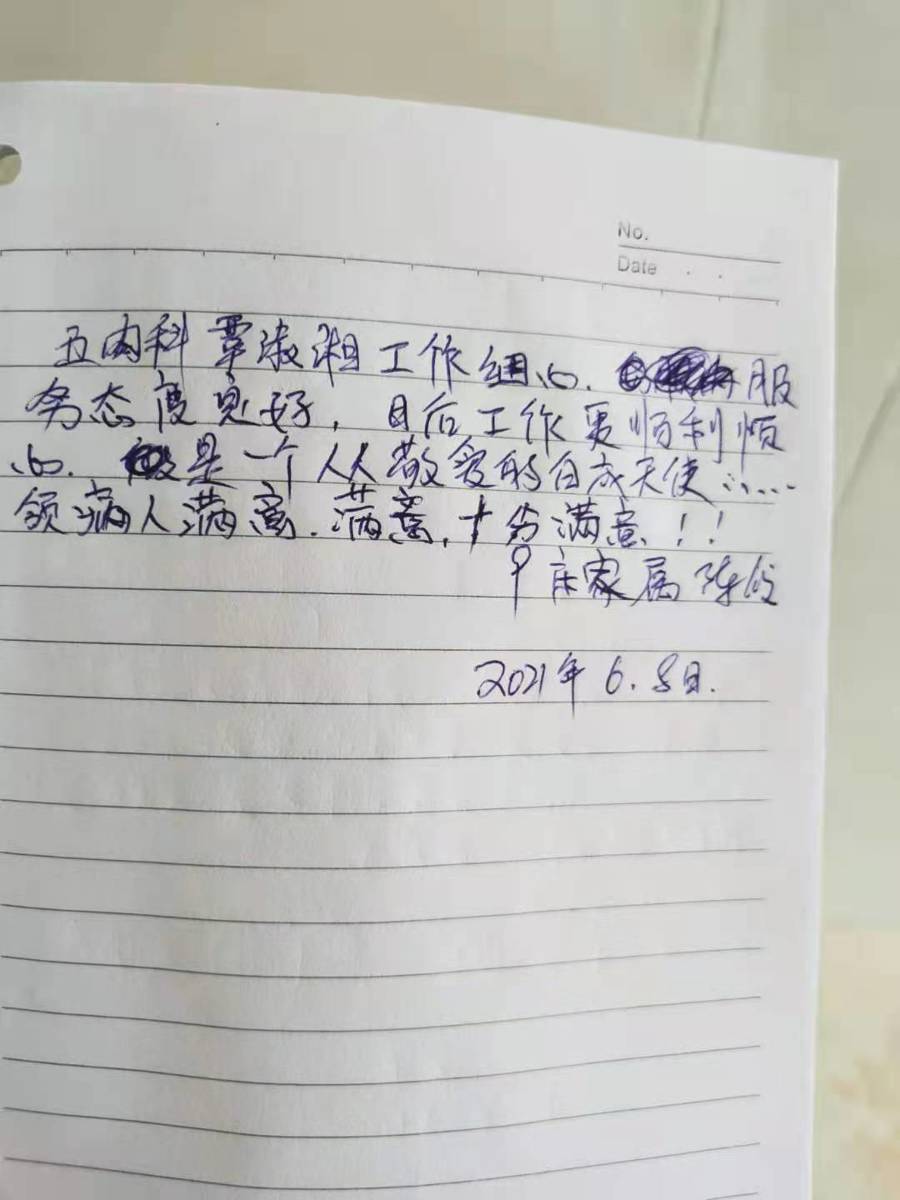 No.
Date
五内科覃淑湘工作组心. 服
务态度良好, 日后工作更顺利顺
心. 是一个人人敬爱的白衣天使......
领病人满意. 满意, 十分满意!!
9床家属陈
2021年6.8日.